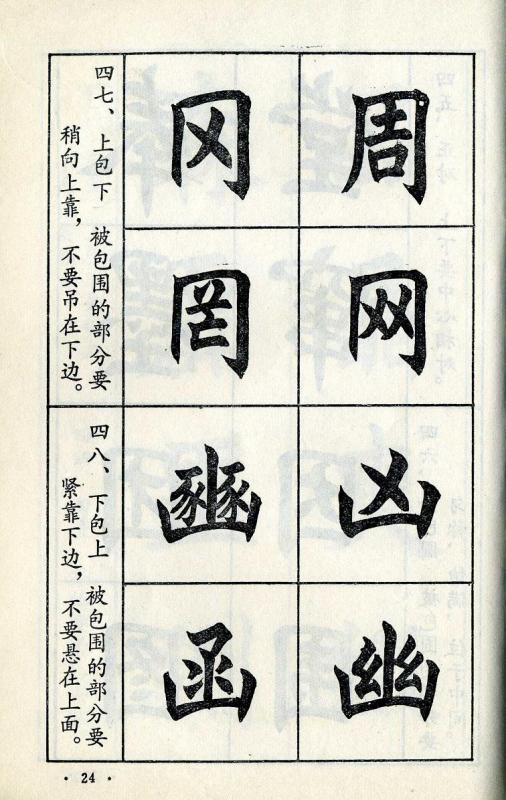 周
网
冈
罔
四七、上包下 被包围的部分要
稍向上靠，不要吊在下边。
凶
幽
豳
函
四八、下包上 被包围的部分要
紧靠下边，不要悬在上面。
·24·